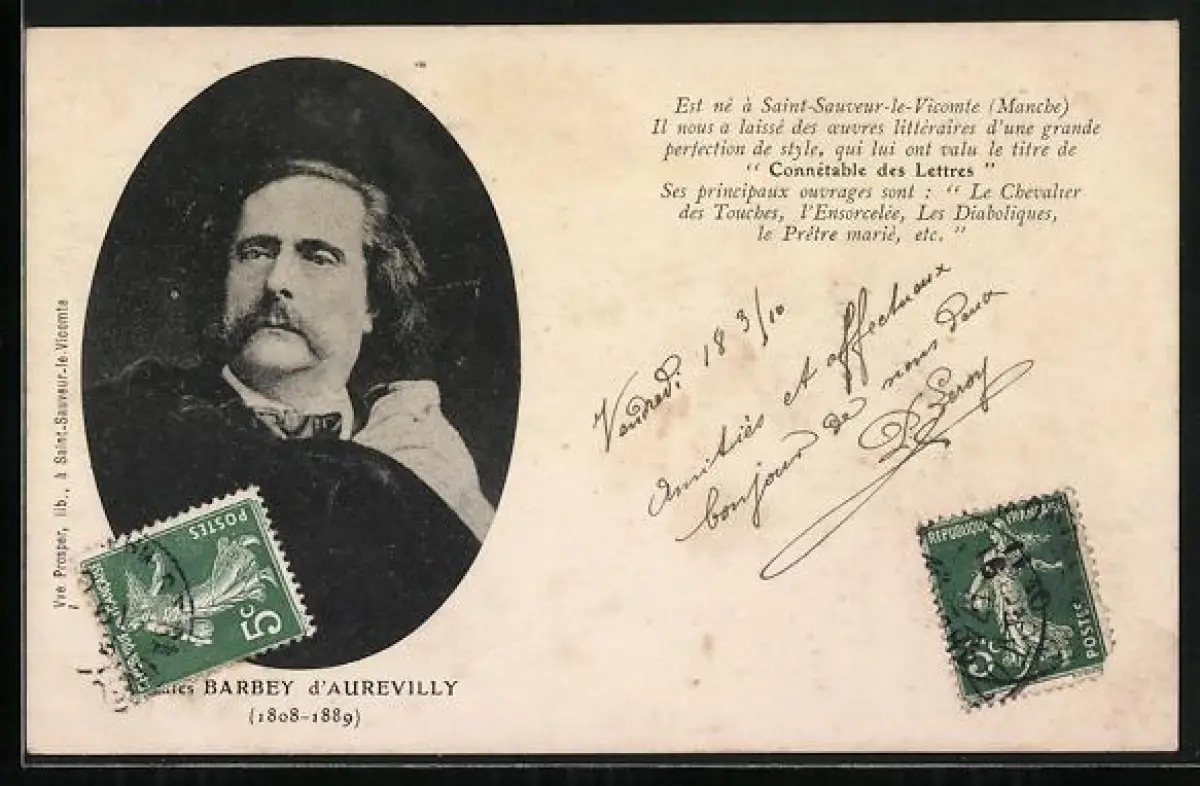 Est né à Saint-Sauveur-le-Vicomte (Manche)
Il nous a laissé des œuvres littéraires d'une grande
perfection de style, qui lui ont valu le titre de
“ Connétable des Lettres ”
Ses principaux ouvrages sont : “ Le Chevalier
des Touches, l'Ensorcelée, Les Diaboliques,
le Prêtre marié, etc. ”
Vendredi 18 3/10
Amitiés et affectueux
bonjour de nous deux
P. Leroy
Vve Prosper, lib., à Saint-Sauveur-le-Vicomte
POSTES
5c
REPUBLIQUE FRANÇAISE
POSTES
5c
BARBEY d'AUREVILLY
(1808-1889)